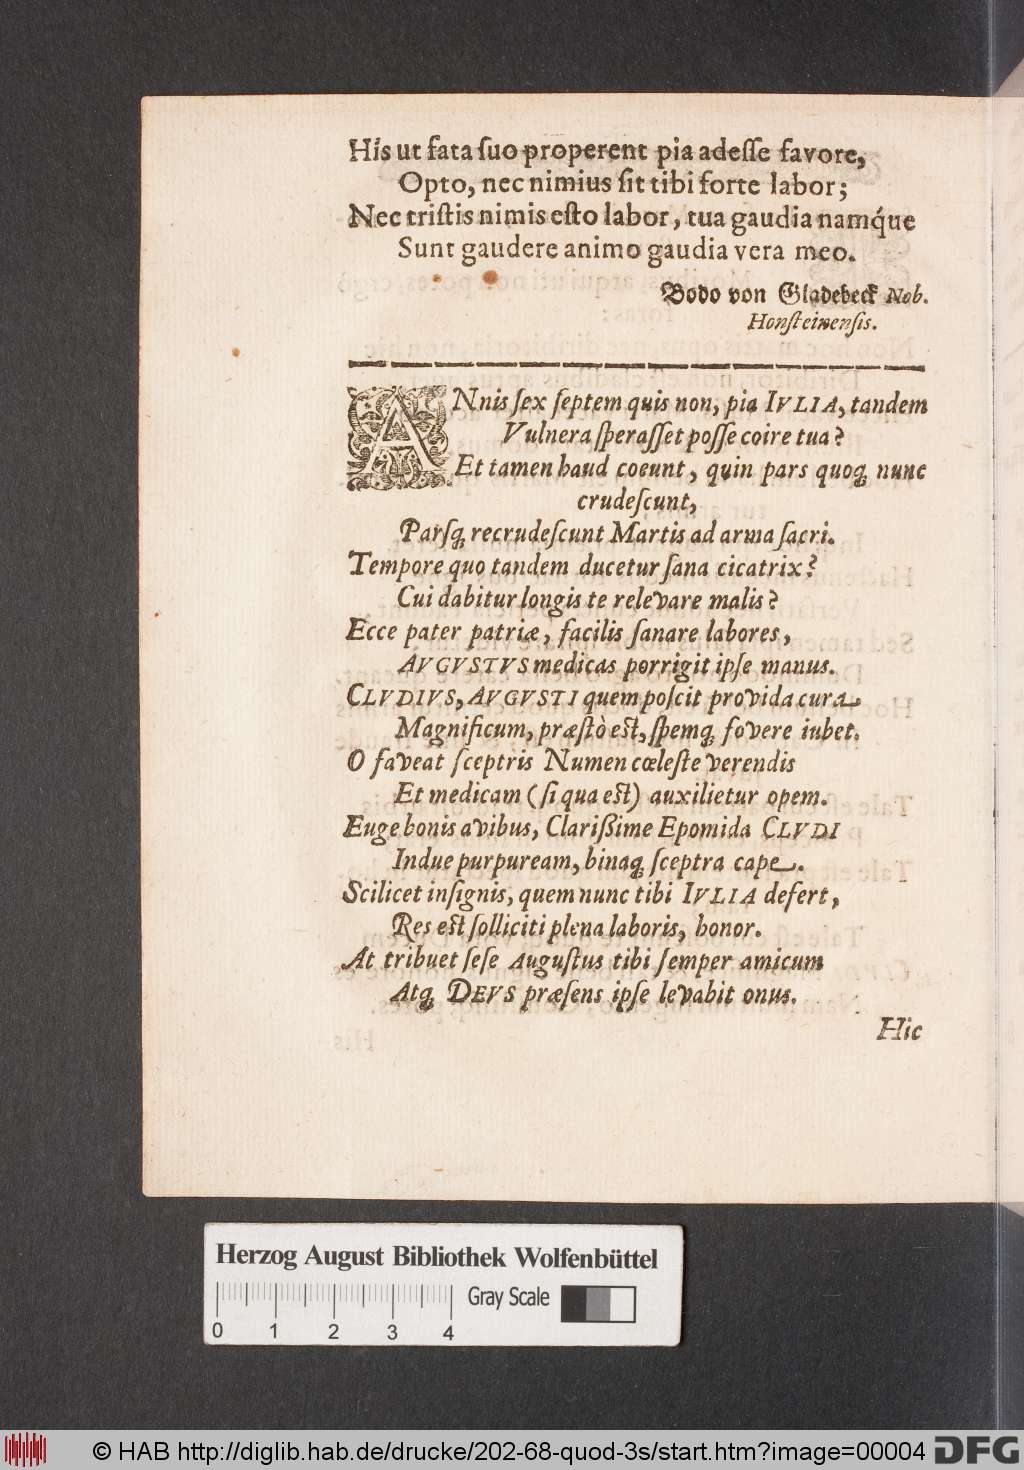 His ut fata ſuo properent pia adeſſe favore,
Opto, nec nimius ſit tibi forte labor;
Nec triſtis nimis eſto labor, tua gaudia namq́ue
Sunt gaudere animo gaudia vera meo.
Bodo von Gladebeck Nob.
Honſteinenſis.
ANnis ſex ſeptem quis non, pia IVLIA, tandem
Vulnera ſperaſſet poſſe coire tua?
Et tamen haud coeunt, quin pars quoq; nunc
crudeſcunt,
Parſq; recrudeſcunt Martis ad arma ſacri.
Tempore quo tandem ducetur ſana cicatrix?
Cui dabitur longis te relevare malis?
Ecce pater patriæ, facilis ſanare labores,
AVGVSTVS medicas porrigit ipſe manus.
CLVDIVS, AVGVSTI quem poſcit provida cura
Magnificum, præſtò eſt, ſpemq; fovere iubet.
O faveat ſceptris Numen cœleſte verendis
Et medicam (ſi qua eſt) auxilietur opem.
Euge bonis avibus, Clarißime Epomida CLVDI
Indue purpuream, binaq; ſceptra cape.
Scilicet inſignis, quem nunc tibi IVLIA defert,
Res eſt ſolliciti plena laboris, honor.
At tribuet ſeſe Auguſtus tibi ſemper amicum
Atq; DEVS præſens ipſe levabit onus.
Hic
Herzog August Bibliothek Wolfenbüttel
Gray Scale
0 1 2 3 4
© HAB http://diglib.hab.de/drucke/202-68-quod-3s/start.htm?image=00004
DFG